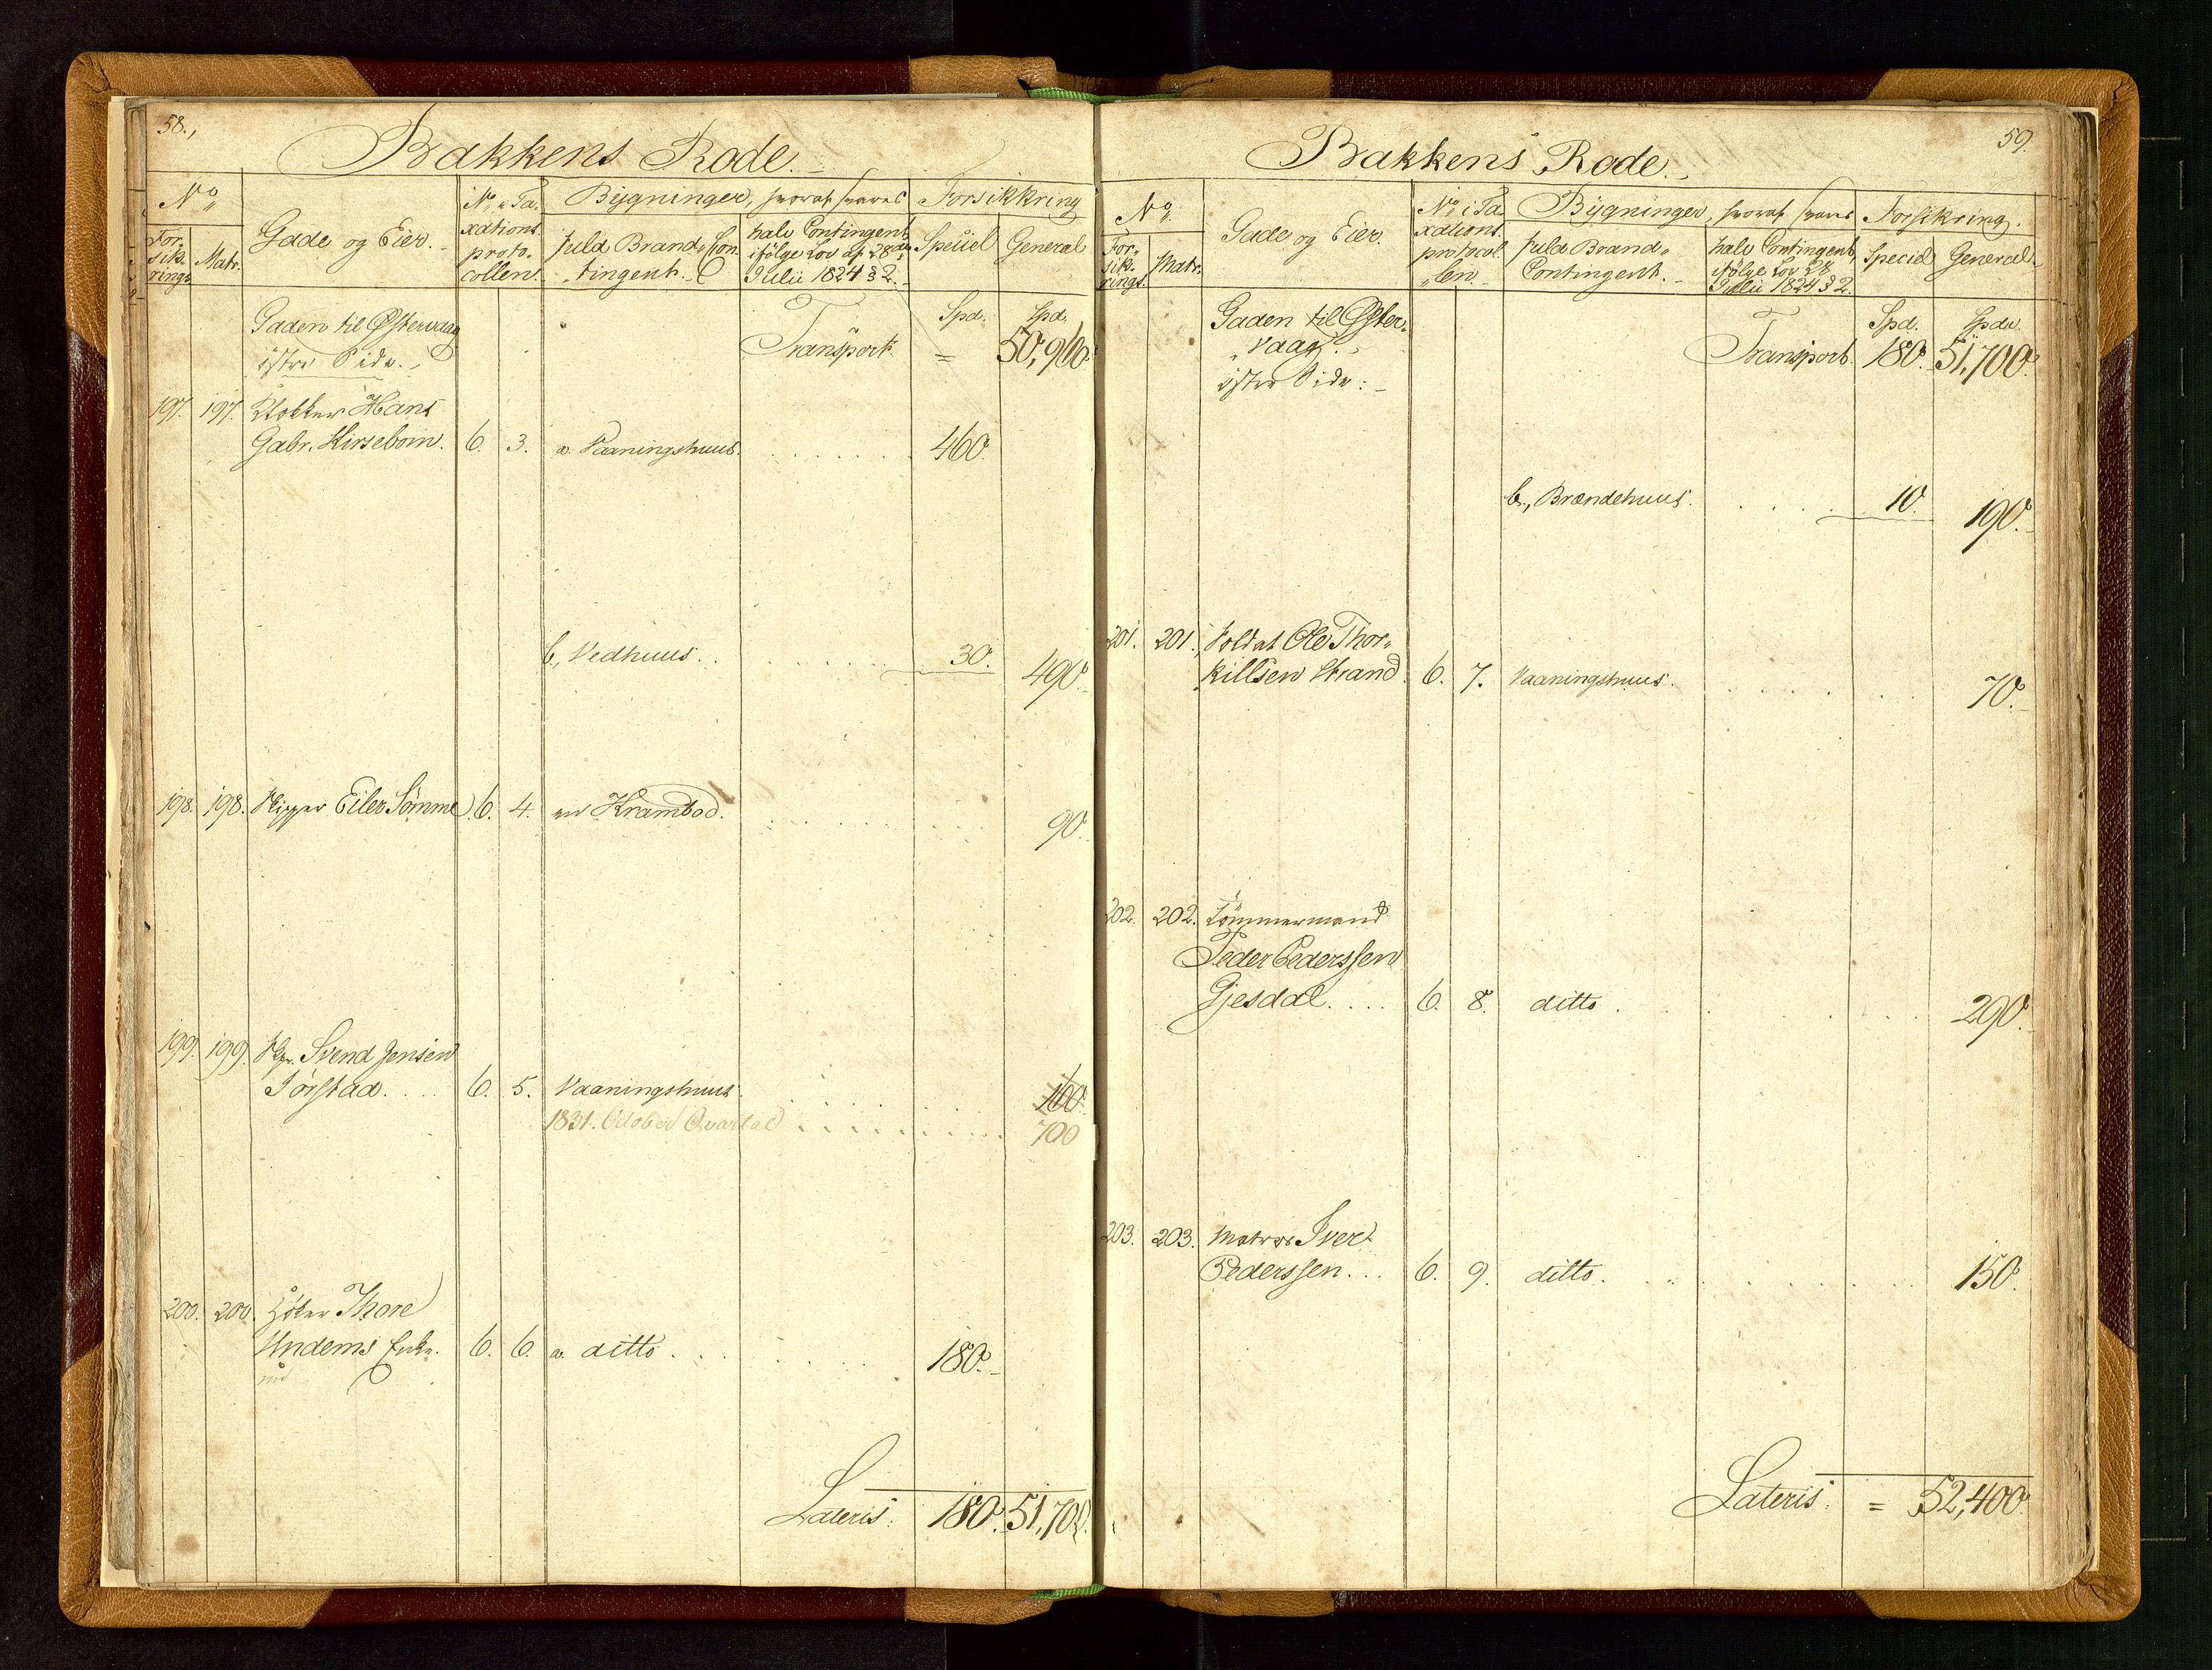 58.,
Bakkens Rode.
No
For-
sik-
rings
Matr.
Gade og Eier.
No i Ta-
xations
proto-
collen.
Bygninger, hvoraf svares
fuld Brand-Con-
tingent.
halv Contingent
ifölge Lov af 28de
Julii 1824 § 2.
Forsikkring
Speciel
General
Gaden til Østervaag
östre Side.
Transport.
Spd.
=
Spd.
50,960.
197. 197. Klokker Hans
Gabr. Kirsebom. 6. 3. a. Vaaningshuus. 460.
b, Vedhuus. 30. 490.
198. 198. Skipper Eiler Sömme. 6. 4. en Krambod. 90.
199. 199. Skpr. Svend Jensen
Törstad. 6. 5. Vaaningshuus. 160.
1831. October Qvartal 700
200. 200. Höker Thore
Undems Enke. 6. 6. a. ditto. 180.
Lateris. 180. 51,700.
59.
Bakkens Rode.
No
For-
sik-
rings.
Matr.
Gade og Eier.
No i Ta-
xations-
protocol-
len.
Bygninger, hvoraf svares
fuld Brand-
Contingent.
halv Contingent,
ifölge Lov 28
Julii 1824 § 2.
Forsikring.
Speciel
General
Gaden til Øster-
vaag.
östre Side.
Transport.
Spd.
180.
Spdr.
51,700.
b., Brændehuus. 10. 190.
201. 201. Soldat Ole Thor-
killsen Strand. 6. 7. Vaaningshuus. 70.
202. 202. Tömmermand
Peder Pederssen
Gjesdal. 6. 8. ditto. 290.
203. 203. Matros Ivert
Pederssen. 6. 9. ditto. 150.
Lateris. = 52,400.